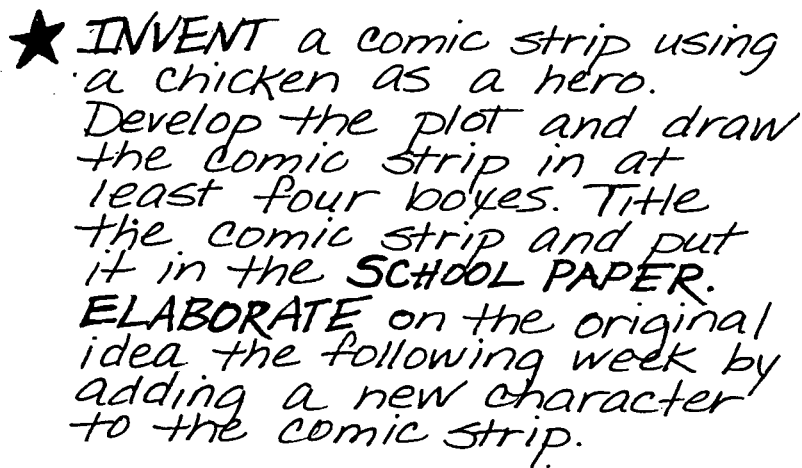 ★ INVENT a comic strip using
a chicken as a hero.
Develop the plot and draw
the comic strip in at
least four boxes. Title
the comic strip and put
it in the SCHOOL PAPER.
ELABORATE on the original
idea the following week by
adding a new character
to the comic strip.